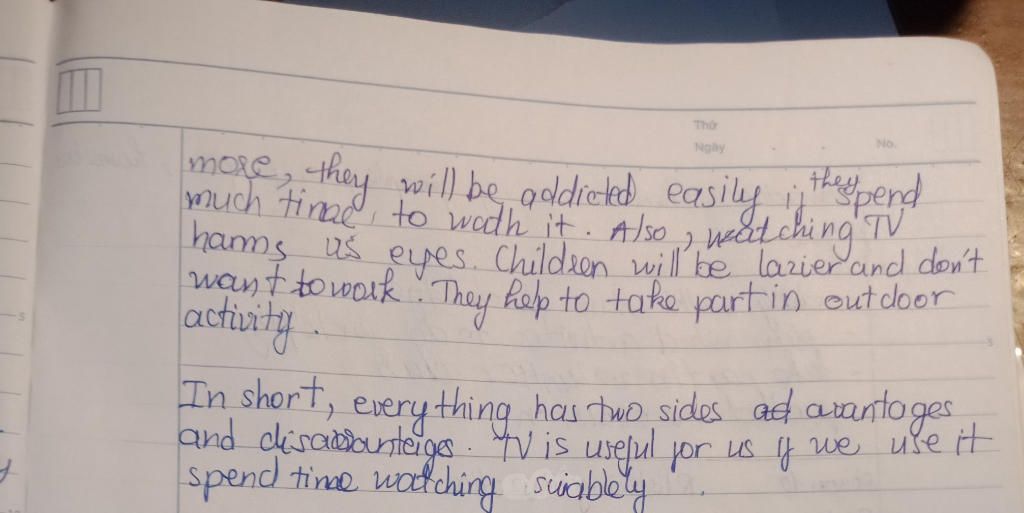 Thứ
Ngày
No.
more, they will be addicted easily if they spend
much time to wacth it. Also, watching TV
harms us eyes. Children will be lazier and don't
want to work. They help to take part in outdoor
activity.
In short, every thing has two sides avantages
and disavanteiges. TV is useful for us if we use it
spend time watching suiablely.